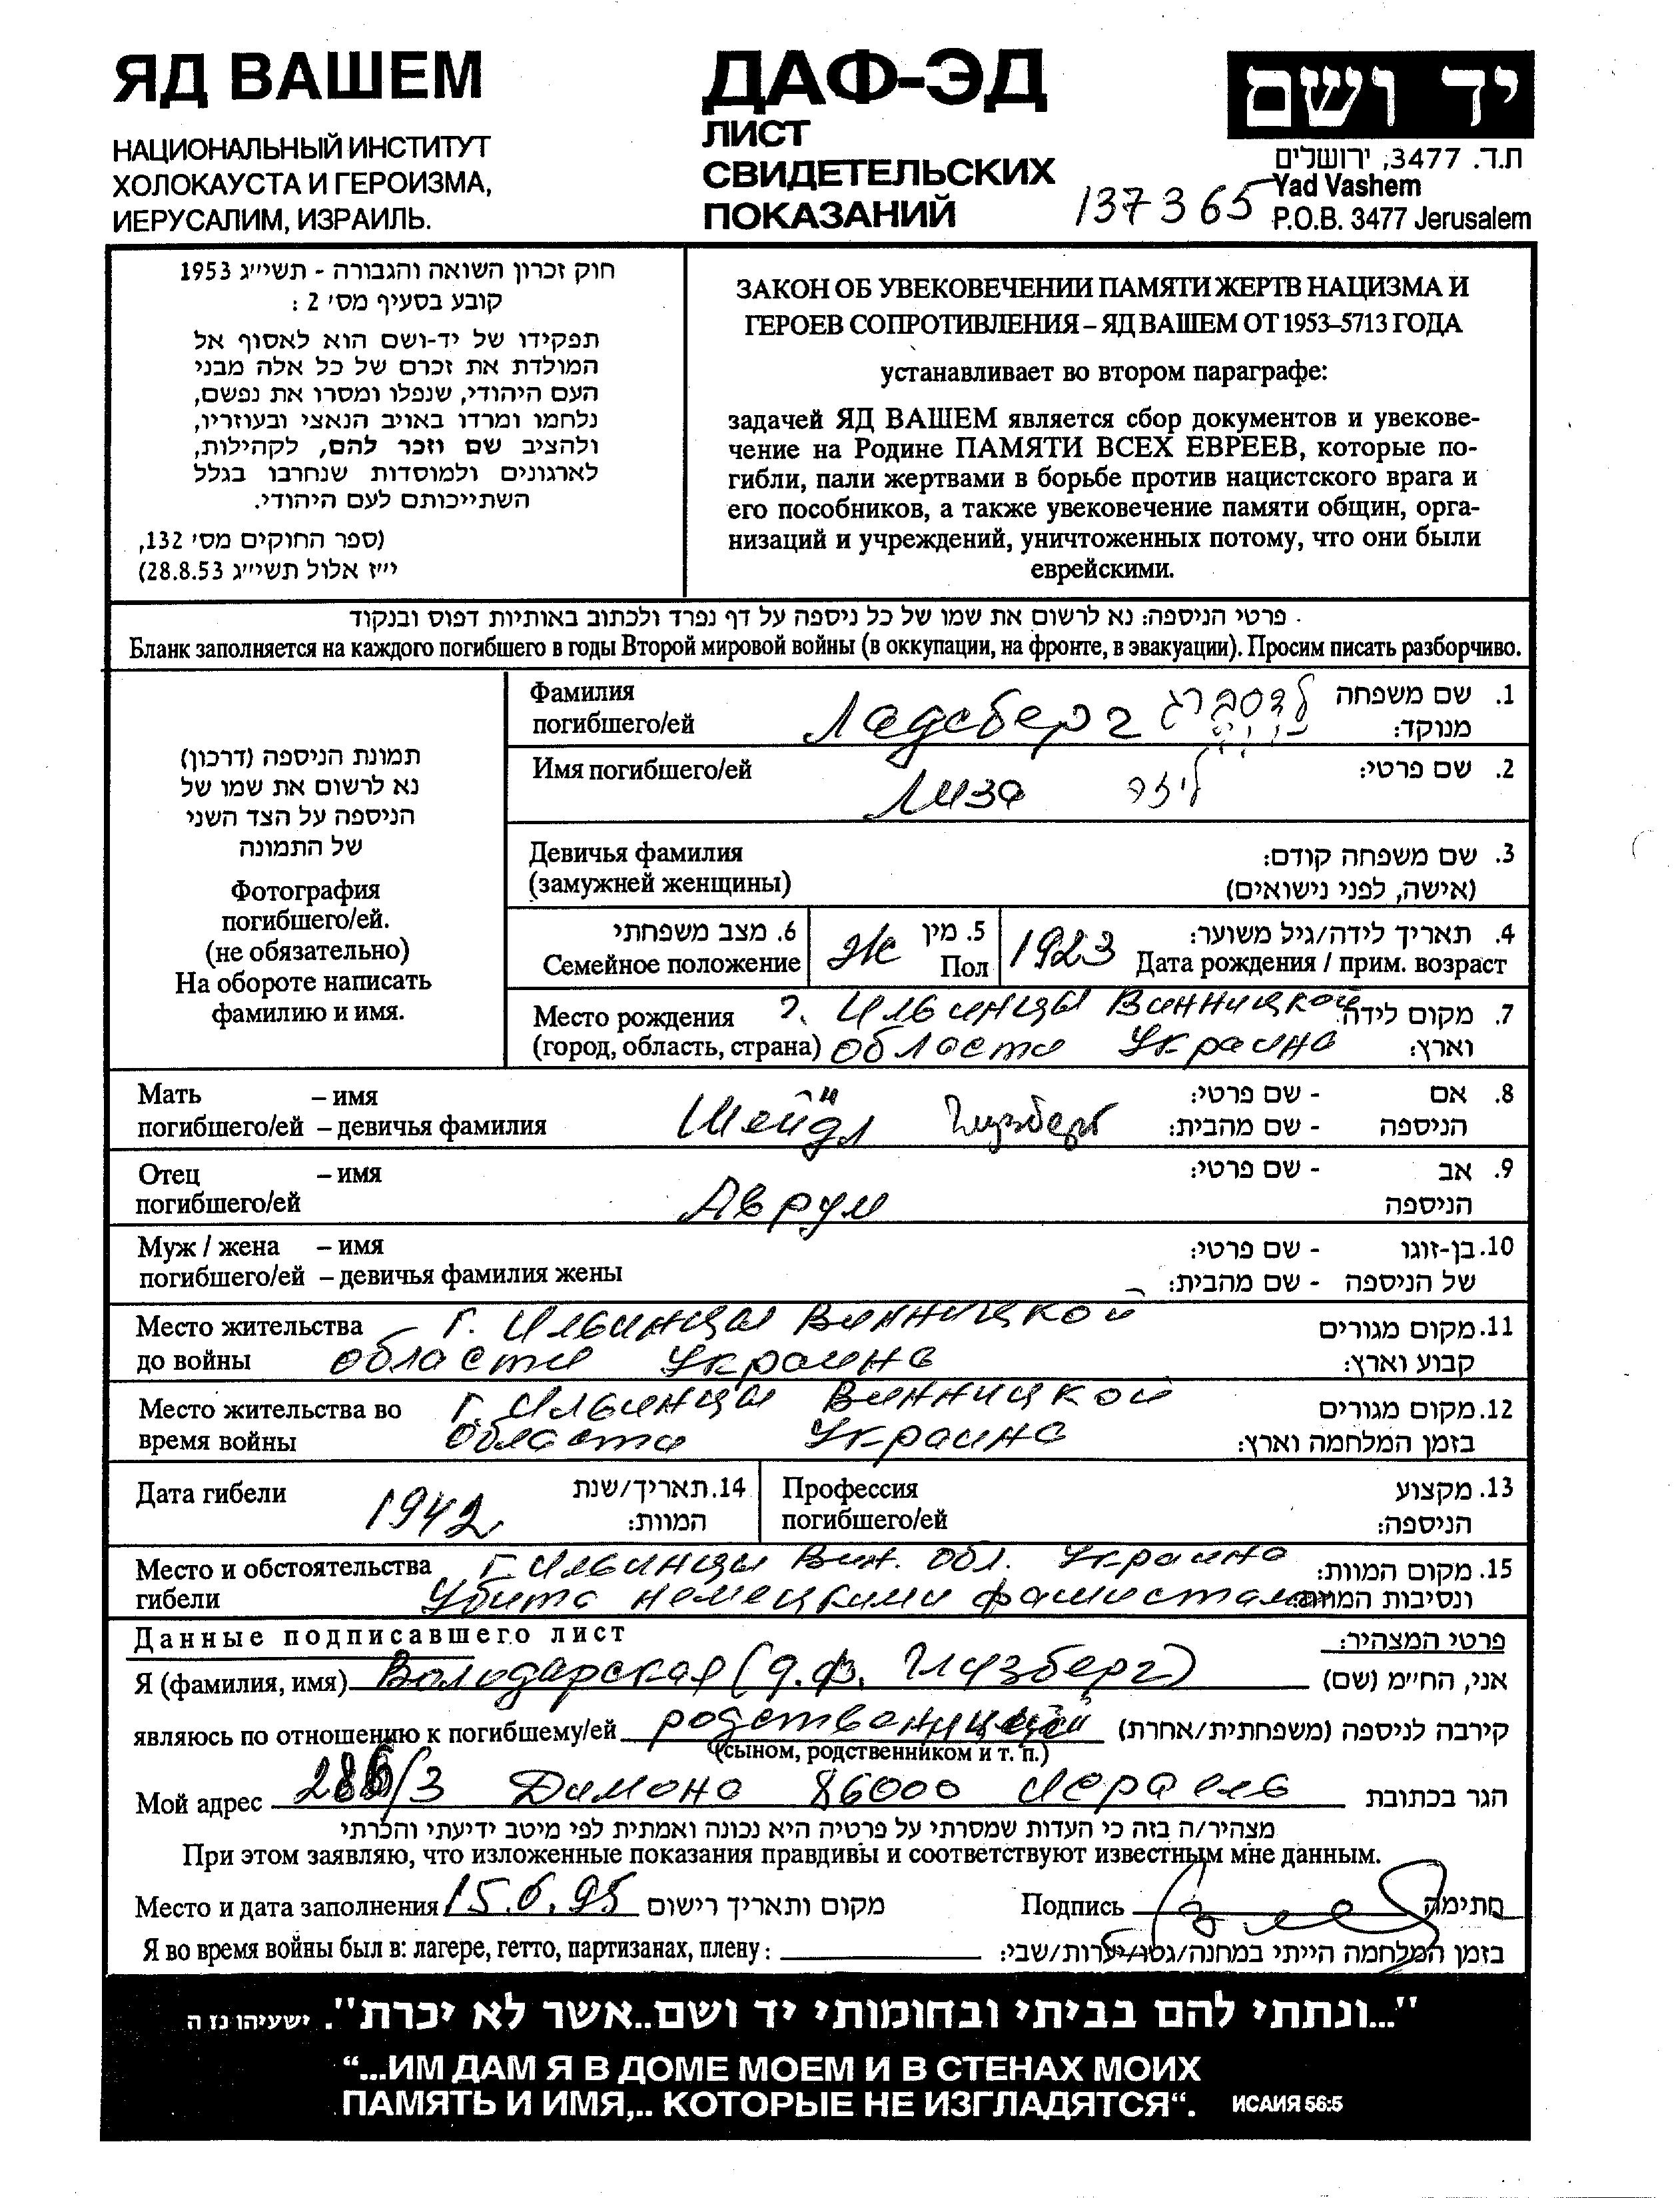 ЯД ВАШЕМ
НАЦИОНАЛЬНЫЙ ИНСТИТУТ
ХОЛОКАУСТА И ГЕРОИЗМА,
ИЕРУСАЛИМ, ИЗРАИЛЬ.
ДАФ-ЭД
ЛИСТ
СВИДЕТЕЛЬСКИХ
ПОКАЗАНИЙ
137365
יד ושם
ת.ד. 3477, ירושלים
Yad Vashem
P.O.B. 3477 Jerusalem
חוק זכרון השואה והגבורה - תשי״ג 1953
קובע בסעיף מס׳ 2 :
תפקידו של יד-ושם הוא לאסוף אל
המולדת את זכרם של כל אלה מבני
העם היהודי, שנפלו ומסרו את נפשם,
נלחמו ומרדו באויב הנאצי ובעוזריו,
ולהציב שם וזכר להם, לקהילות,
לארגונים ולמוסדות שנחרבו בגלל
השתייכותם לעם היהודי.
(ספר החוקים מס׳ 132,
י״ז אלול תשי״ג 28.8.53)
ЗАКОН ОБ УВЕКОВЕЧЕНИИ ПАМЯТИ ЖЕРТВ НАЦИЗМА И
ГЕРОЕВ СОПРОТИВЛЕНИЯ – ЯД ВАШЕМ ОТ 1953–5713 ГОДА
устанавливает во втором параграфе:
задачей ЯД ВАШЕМ является сбор документов и увекове-
чение на Родине ПАМЯТИ ВСЕХ ЕВРЕЕВ, которые по-
гибли, пали жертвами в борьбе против нацистского врага и
его пособников, а также увековечение памяти общин, орга-
низаций и учреждений, уничтоженных потому, что они были
еврейскими.
פרטי הניספה: נא לרשום את שמו של כל ניספה על דף נפרד ולכתוב באותיות דפוס ובנקוד.
Бланк заполняется на каждого погибшего в годы Второй мировой войны (в оккупации, на фронте, в эвакуации). Просим писать разборчиво.
תמונת הניספה (דרכון)
נא לרשום את שמו של
הניספה על הצד השני
של התמונה
Фотография
погибшего/ей.
(не обязательно)
На обороте написать
фамилию и имя.
Фамилия
погибшего/ей Ладсберг לדסברג 1. שם משפחה
מנוקד:
Имя погибшего/ей Лиза ליזה 2. שם פרטי:
Девичья фамилия 3. שם משפחה קודם:
(замужней женщины) (אישה, לפני נישואים)
6. מצב משפחתי
Семейное положение
5. מין
Ж Пол
1923 4. תאריך לידה/גיל משוער:
Дата рождения / прим. возраст
Место рождения г. Ильинцы Винницкой 7. מקום לידה
(город, область, страна) области Украина וארץ:
Мать – имя 8. אם - שם פרטי:
погибшего/ей – девичья фамилия Шейдл Глузберг הניספה - שם מהבית:
Отец – имя 9. אב - שם פרטי:
погибшего/ей Аврум הניספה
Муж / жена – имя 10. בן-זוגו - שם פרטי:
погибшего/ей – девичья фамилия жены של הניספה - שם מהבית:
Место жительства г. Ильинцы Винницкой 11. מקום מגורים
до войны области Украина קבוע וארץ:
Место жительства во г. Ильинцы Винницкой 12. מקום מגורים
время войны области Украина בזמן המלחמה וארץ:
Дата гибели 1942 14. תאריך/שנת
המוות:
Профессия 13. מקצוע
погибшего/ей הניספה:
Место и обстоятельства г. Ильинцы Вин. обл. Украина 15. מקום המוות:
гибели Убита немецкими фашистами ונסיבות המוות:
Данные подписавшего лист פרטי המצהיר:
Я (фамилия, имя) Володарская (д.ф. Глузберг) אני, הח״מ (שם)
являюсь по отношению к погибшему/ей родственницей קירבה לניספה (משפחתית/אחרת)
(сыном, родственником и т. п.)
Мой адрес 286/3 Димона 86000 Израиль הגר בכתובת
מצהיר/ה בזה כי העדות שמסרתי על פרטיה היא נכונה ואמתית לפי מיטב ידיעתי והכרתי
При этом заявляю, что изложенные показания правдивы и соответствуют известным мне данным.
Место и дата заполнения 15.6.95 מקום ותאריך רישום Подпись חתימה
Я во время войны был в: лагере, гетто, партизанах, плену: בזמן המלחמה הייתי במחנה/גטו/יערות/שבי:
"...ונתתי להם בביתי ובחומותי יד ושם..אשר לא יכרת". ישעיהו נז ה
“...ИМ ДАМ Я В ДОМЕ МОЕМ И В СТЕНАХ МОИХ
ПАМЯТЬ И ИМЯ,.. КОТОРЫЕ НЕ ИЗГЛАДЯТСЯ“. ИСАИЯ 56:5